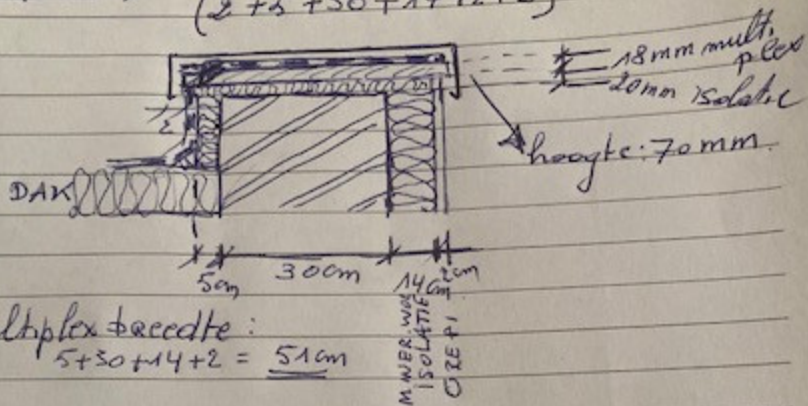 (2 + 5 + 30 + 14 +
18mm multi
plex
20mm isolatie
2
hoogte: 70mm.
DAK
5cm 30cm 14cm 2cm
MINER. WOL
ISOLATIE
ltiplex breedte:
5+30+14+2 = 51cm